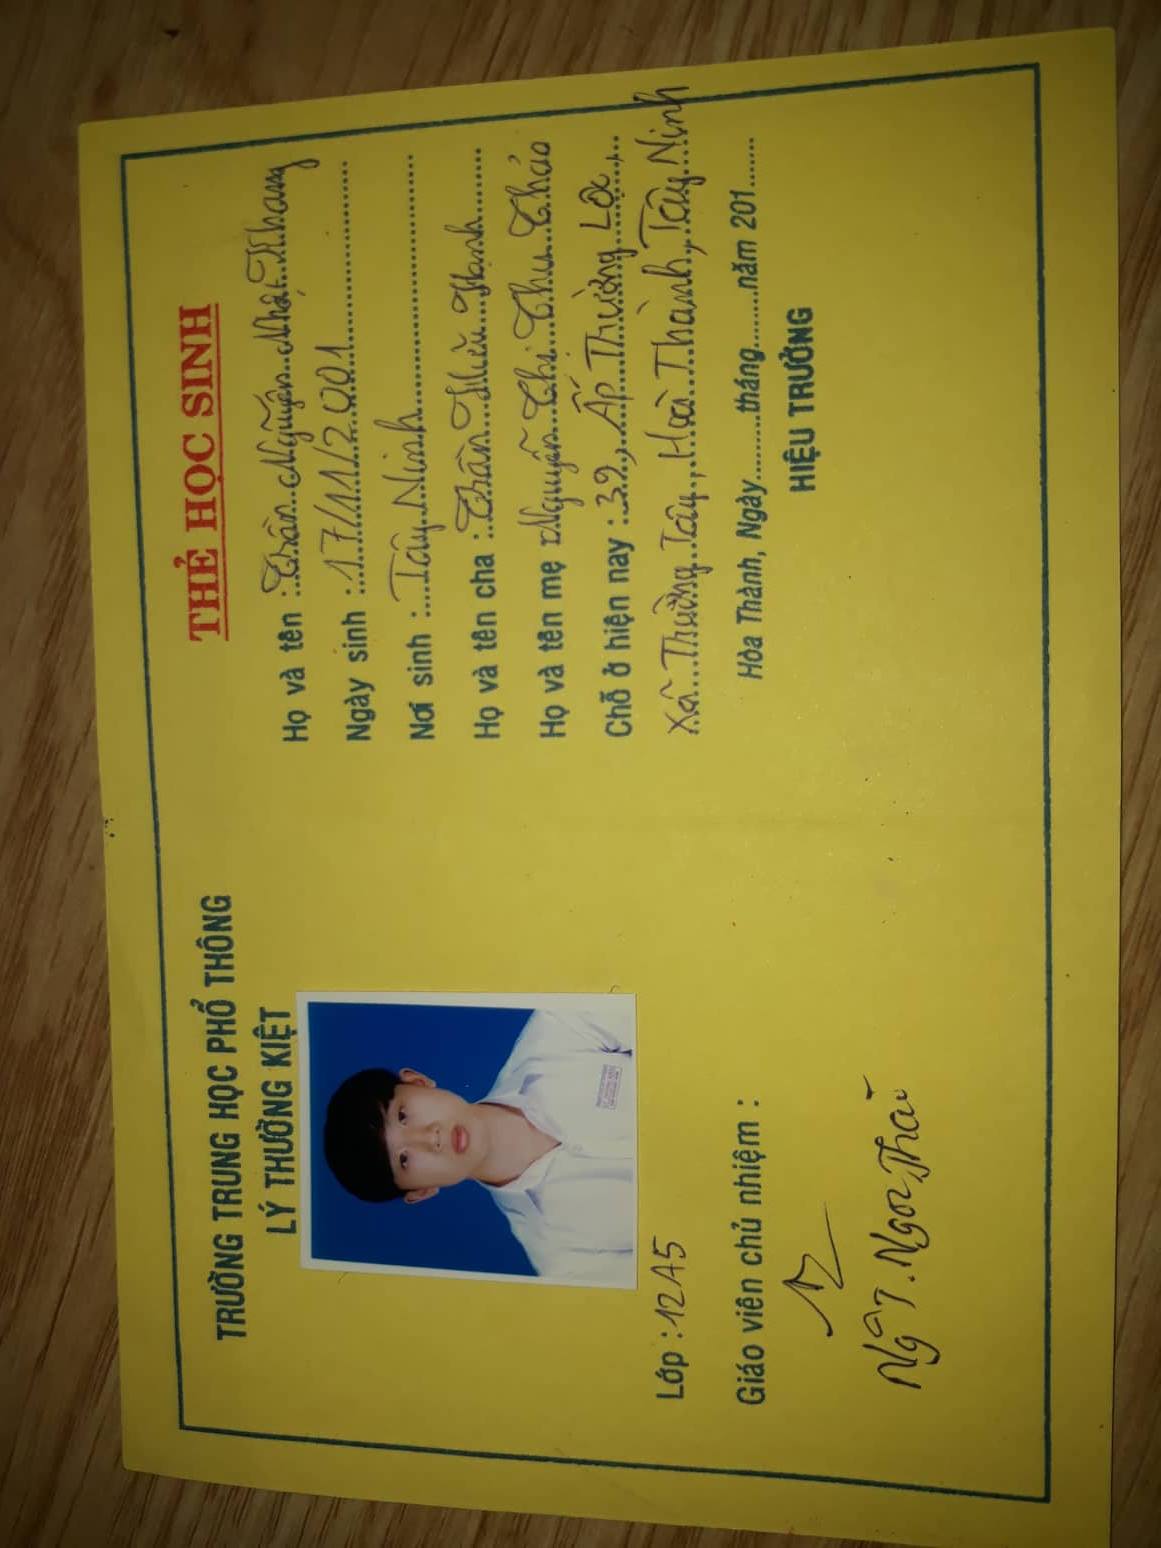 TRƯỜNG TRUNG HỌC PHỔ THÔNG
LÝ THƯỜNG KIỆT
Lớp : 12A5
Giáo viên chủ nhiệm :
Ng T. Ngọc Thái
THẺ HỌC SINH
Họ và tên : Trần Nguyễn Nhật Khang
Ngày sinh : 17/11/2001
Nơi sinh : Tây Ninh
Họ và tên cha : Trần Hiếu Hạnh
Họ và tên mẹ Nguyễn Thị Thu Thảo
Chỗ ở hiện nay : 39, Ấp Trường Lộc,
Xã Trường Tây, Hoà Thành, Tây Ninh
Hòa Thành, Ngày.........tháng.........năm 201......
HIỆU TRƯỞNG